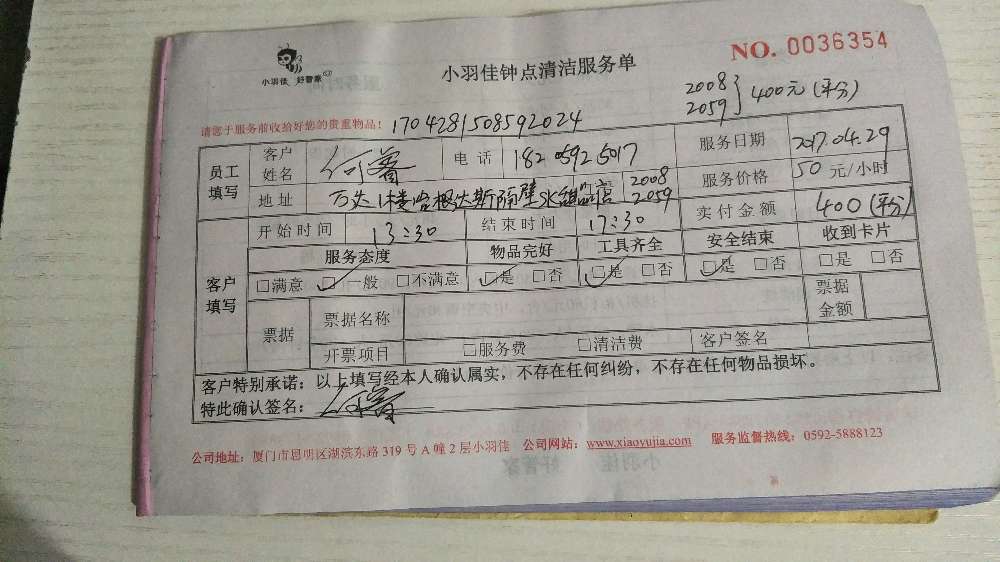 小羽佳 好管家
小羽佳钟点清洁服务单
NO. 0036354
2008
2059 } 400元(平分)
请您于服务前收拾好您的贵重物品! 1704281508592024
员工填写 客户姓名 何蓉 电话 182 0592 5017 服务日期 2017.04.29
地址 万达1楼哈根达斯隔壁水 店 2008 2059 服务价格 50 元/小时
客户填写 开始时间 13:30 结束时间 17:30 实付金额 400(平分)
服务态度 物品完好 工具齐全 安全结束 收到卡片
□满意 □一般 □不满意 □是 □否 □是 □否 □是 □否 □是 □否
票据 票据名称 票据金额
开票项目 □服务费 □清洁费 客户签名
客户特别承诺:以上填写经本人确认属实,不存在任何纠纷,不存在任何物品损坏.
特此确认签名: 何蓉
公司地址:厦门市思明区湖滨东路 319 号 A 幢 2 层小羽佳 公司网站:www.xiaoyujia.com 服务监督热线:0592-5888123